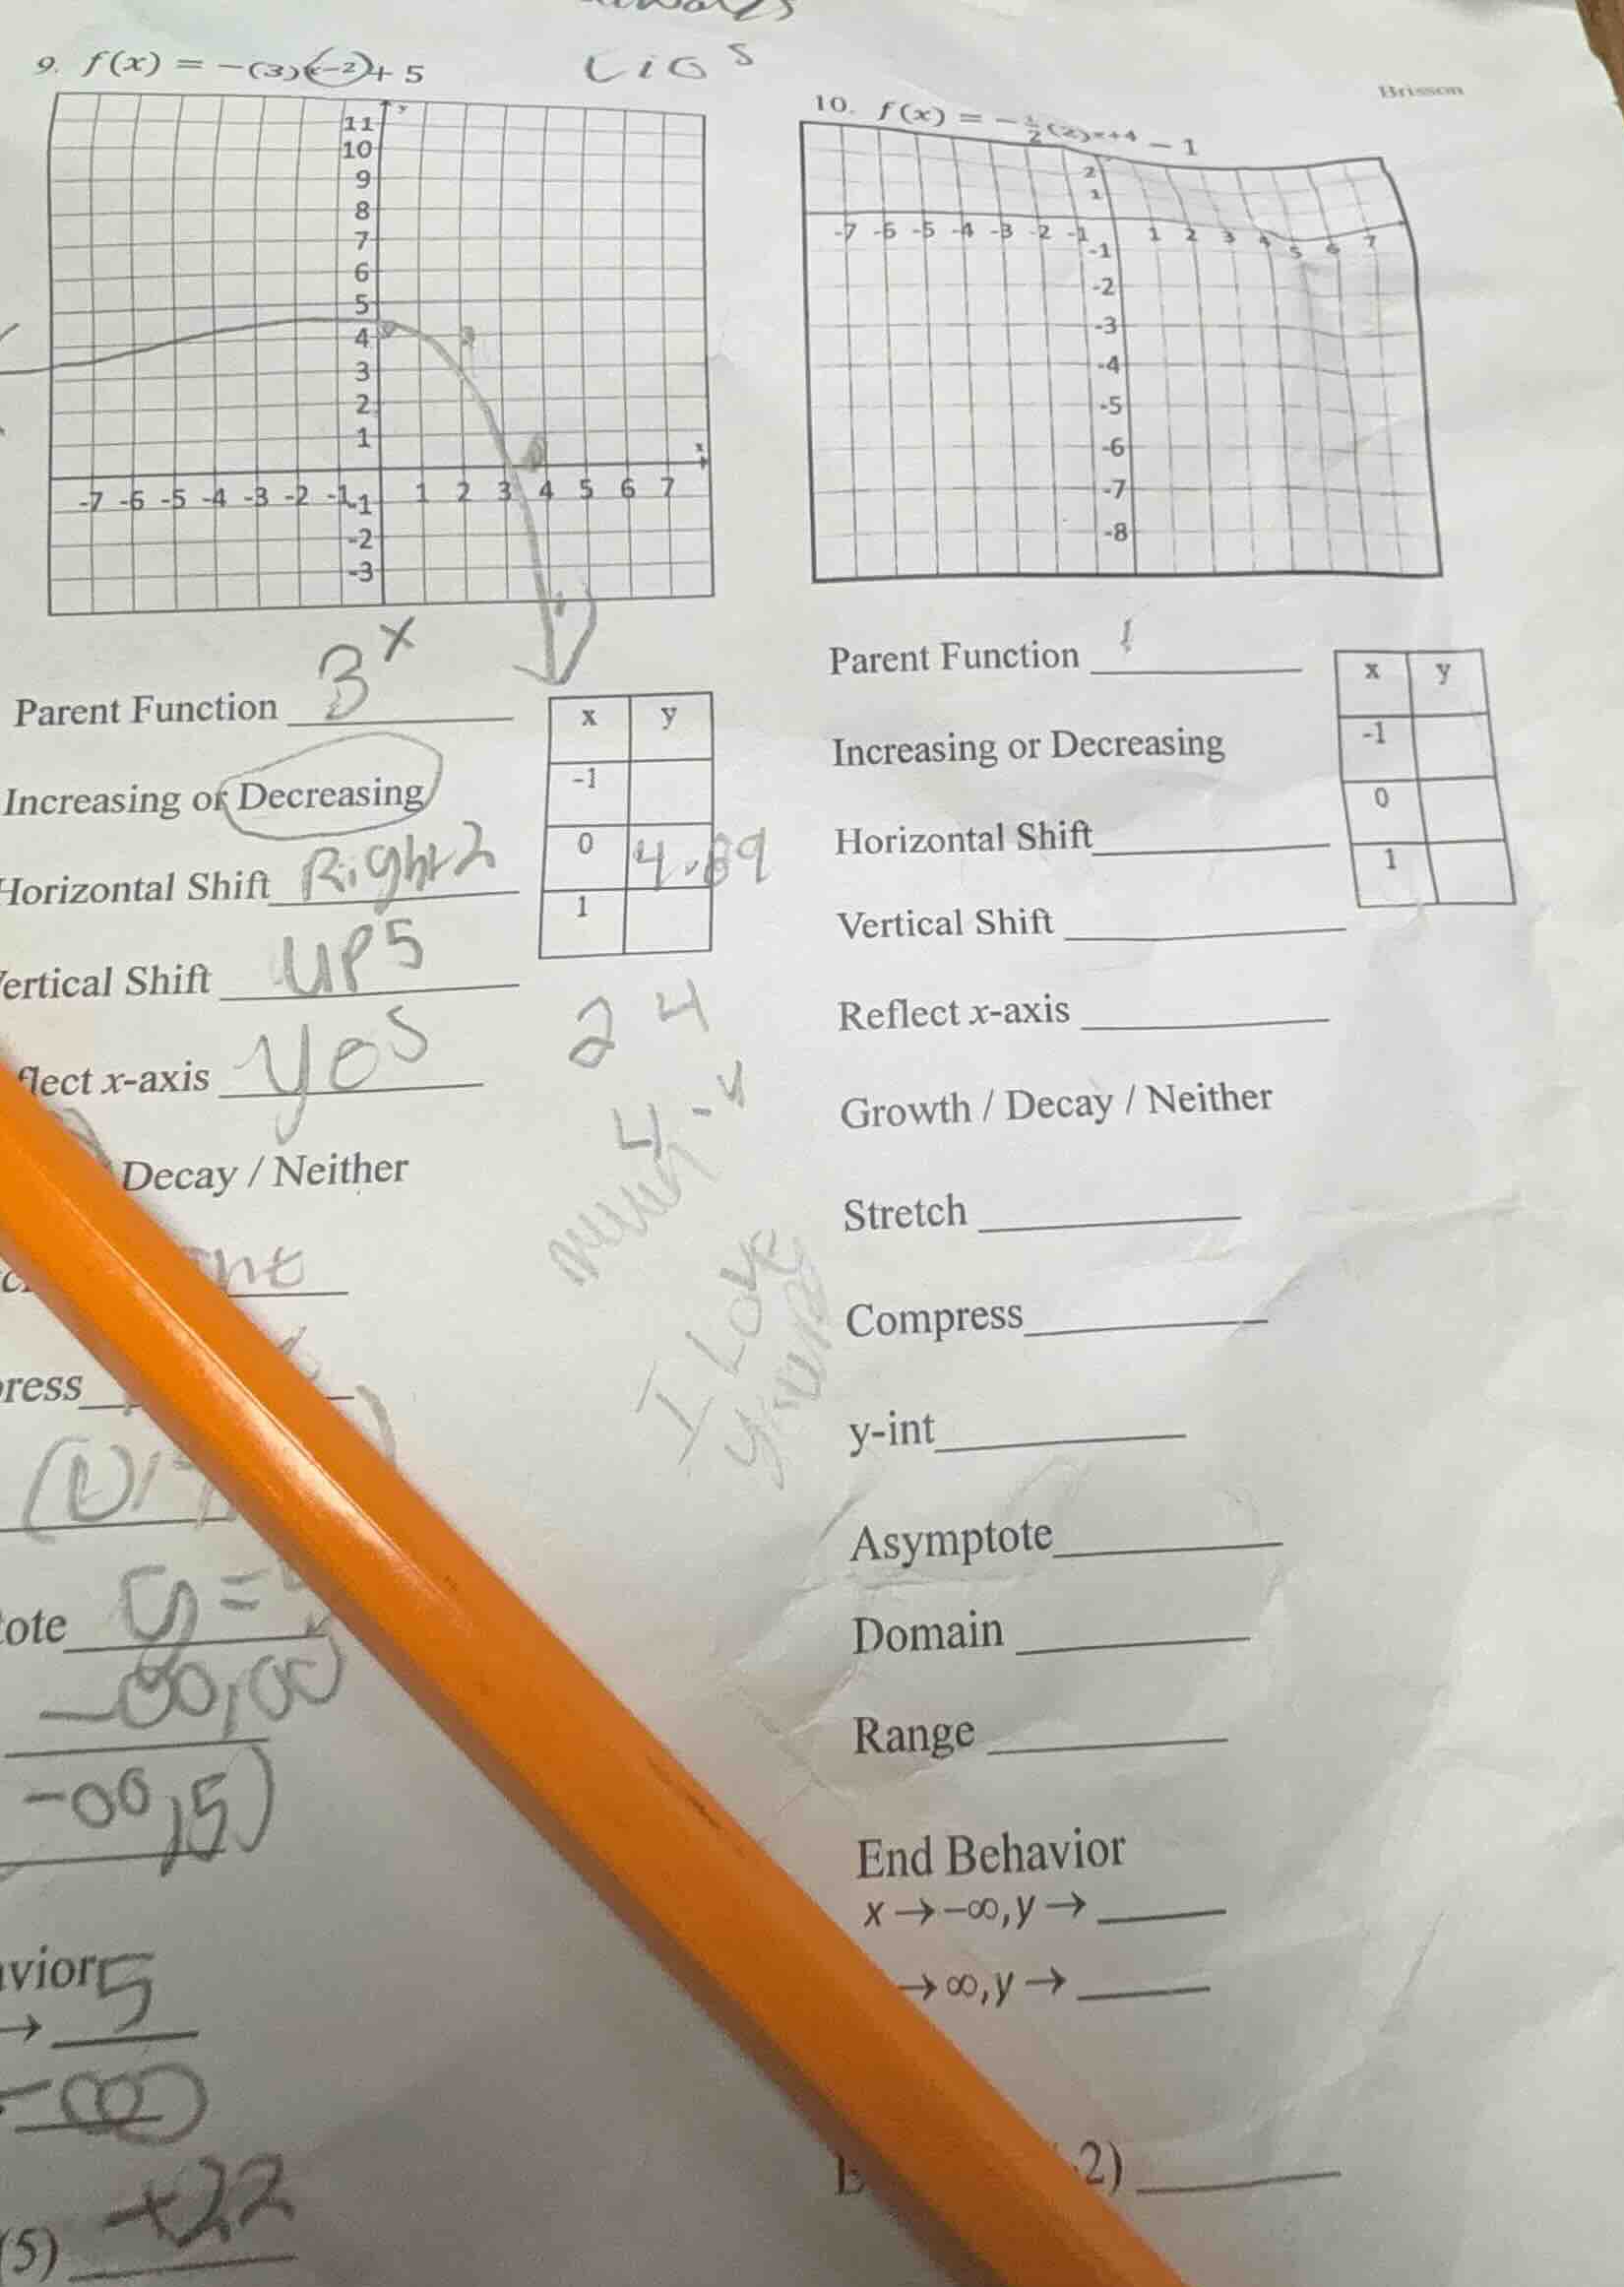 9. f(x) = -(3)(x-2) + 5
Brisson
10. f(x) = -1/2(2)x+4 - 1
y
11
10
9
8
7
6
5
4
3
2
1
x
-7 -6 -5 -4 -3 -2 -1 1 2 3 4 5 6 7
-1
-2
-3
2
1
-7 -6 -5 -4 -3 -2 -1 1 2 3 4 5 6 7
-1
-2
-3
-4
-5
-6
-7
-8
Parent Function 3x
Increasing or Decreasing
Horizontal Shift Right 2
ertical Shift UP 5
flect x-axis yes
Decay / Neither
ress
ote y =
-∞,∞
-∞,5)
vior
→ 5
-∞
(5) +22
x y
-1
0 4.89
1
24
4
I Love
Parent Function
Increasing or Decreasing
Horizontal Shift
Vertical Shift
Reflect x-axis
Growth / Decay / Neither
Stretch
Compress
y-int
Asymptote
Domain
Range
End Behavior
x → -∞, y →
→ ∞, y →
2)
x y
-1
0
1